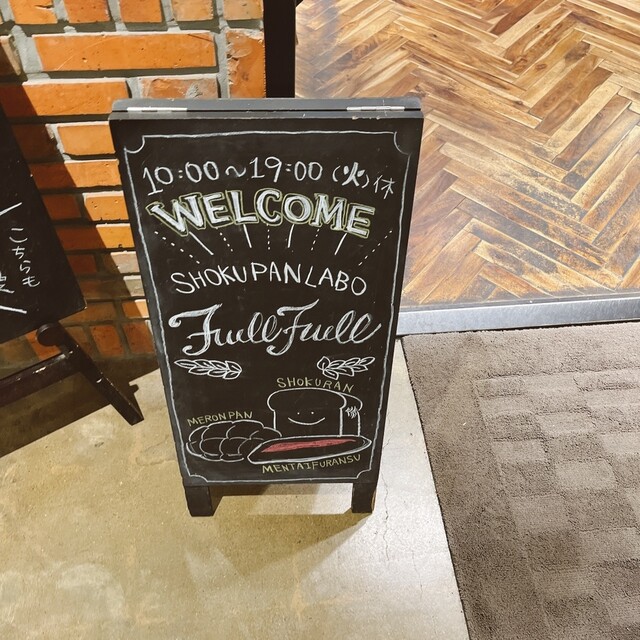 10:00〜19:00 (火)休
WELCOME
SHOKUPANLABO
FuullFuull
SHOKURAN
MERONPAN
MENTAIFURANSU
こちらも